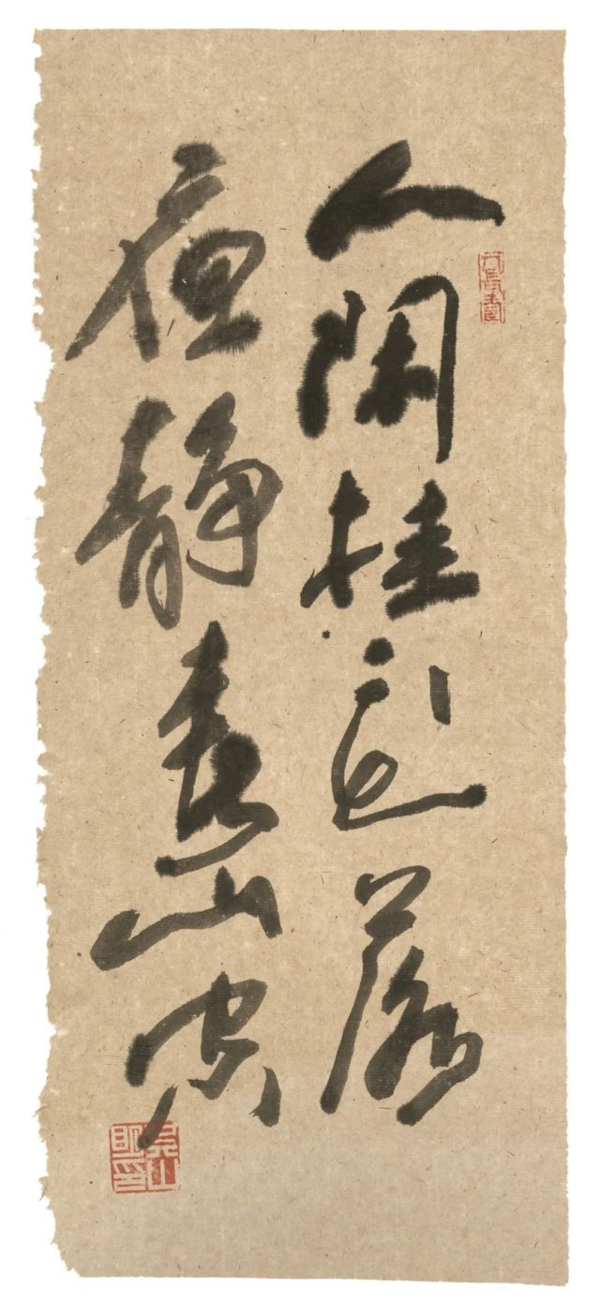 人閑桂花落
夜静春山空